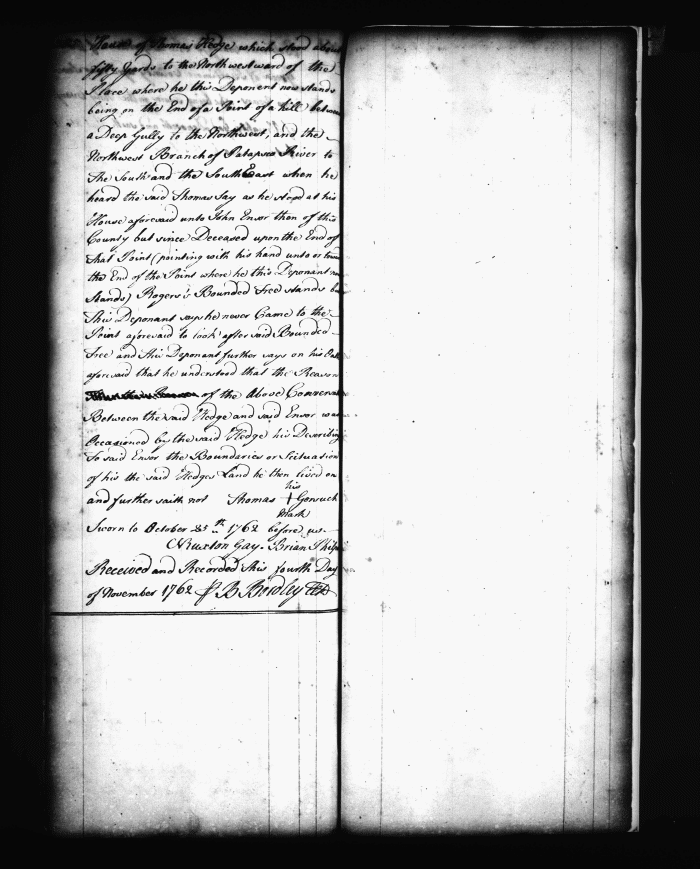 House of Thomas Hedge which stood about
fifty Yards to the Northwestward of the
Place where he this Deponent now stands
being on the End of a Point of a hill between
a Deep Gully to the Northwest, and the
Northwest Branch of Patapsco River to
The South and the South East when he
heard the said Thomas Say as he stood at his
House aforesaid unto John Ensor then of this
County but since Deceased upon the End of
that Point (pointing with his hand unto or
the End of the Point where he this Deponant
Stands) Rogers's Bounded Tree stands
This Deponant says he never Came to the
Point aforesaid to look after said Bounded
Tree and This Deponant further says on his
aforesaid that he understood that the Reason
of the Above
Between the said Hedge and said Ensor was
Occasioned by the said Hedge his Describing
To said Ensor the Boundaries or Scituation
of his the said Hedges Land he then lived on
and further saith not Thomas his + mark Gorsuch
Sworn to October 25th 1762 before us
N Ruxton Gay. Brian
Received and Recorded This fourth Day
of November 1762 B Bordley